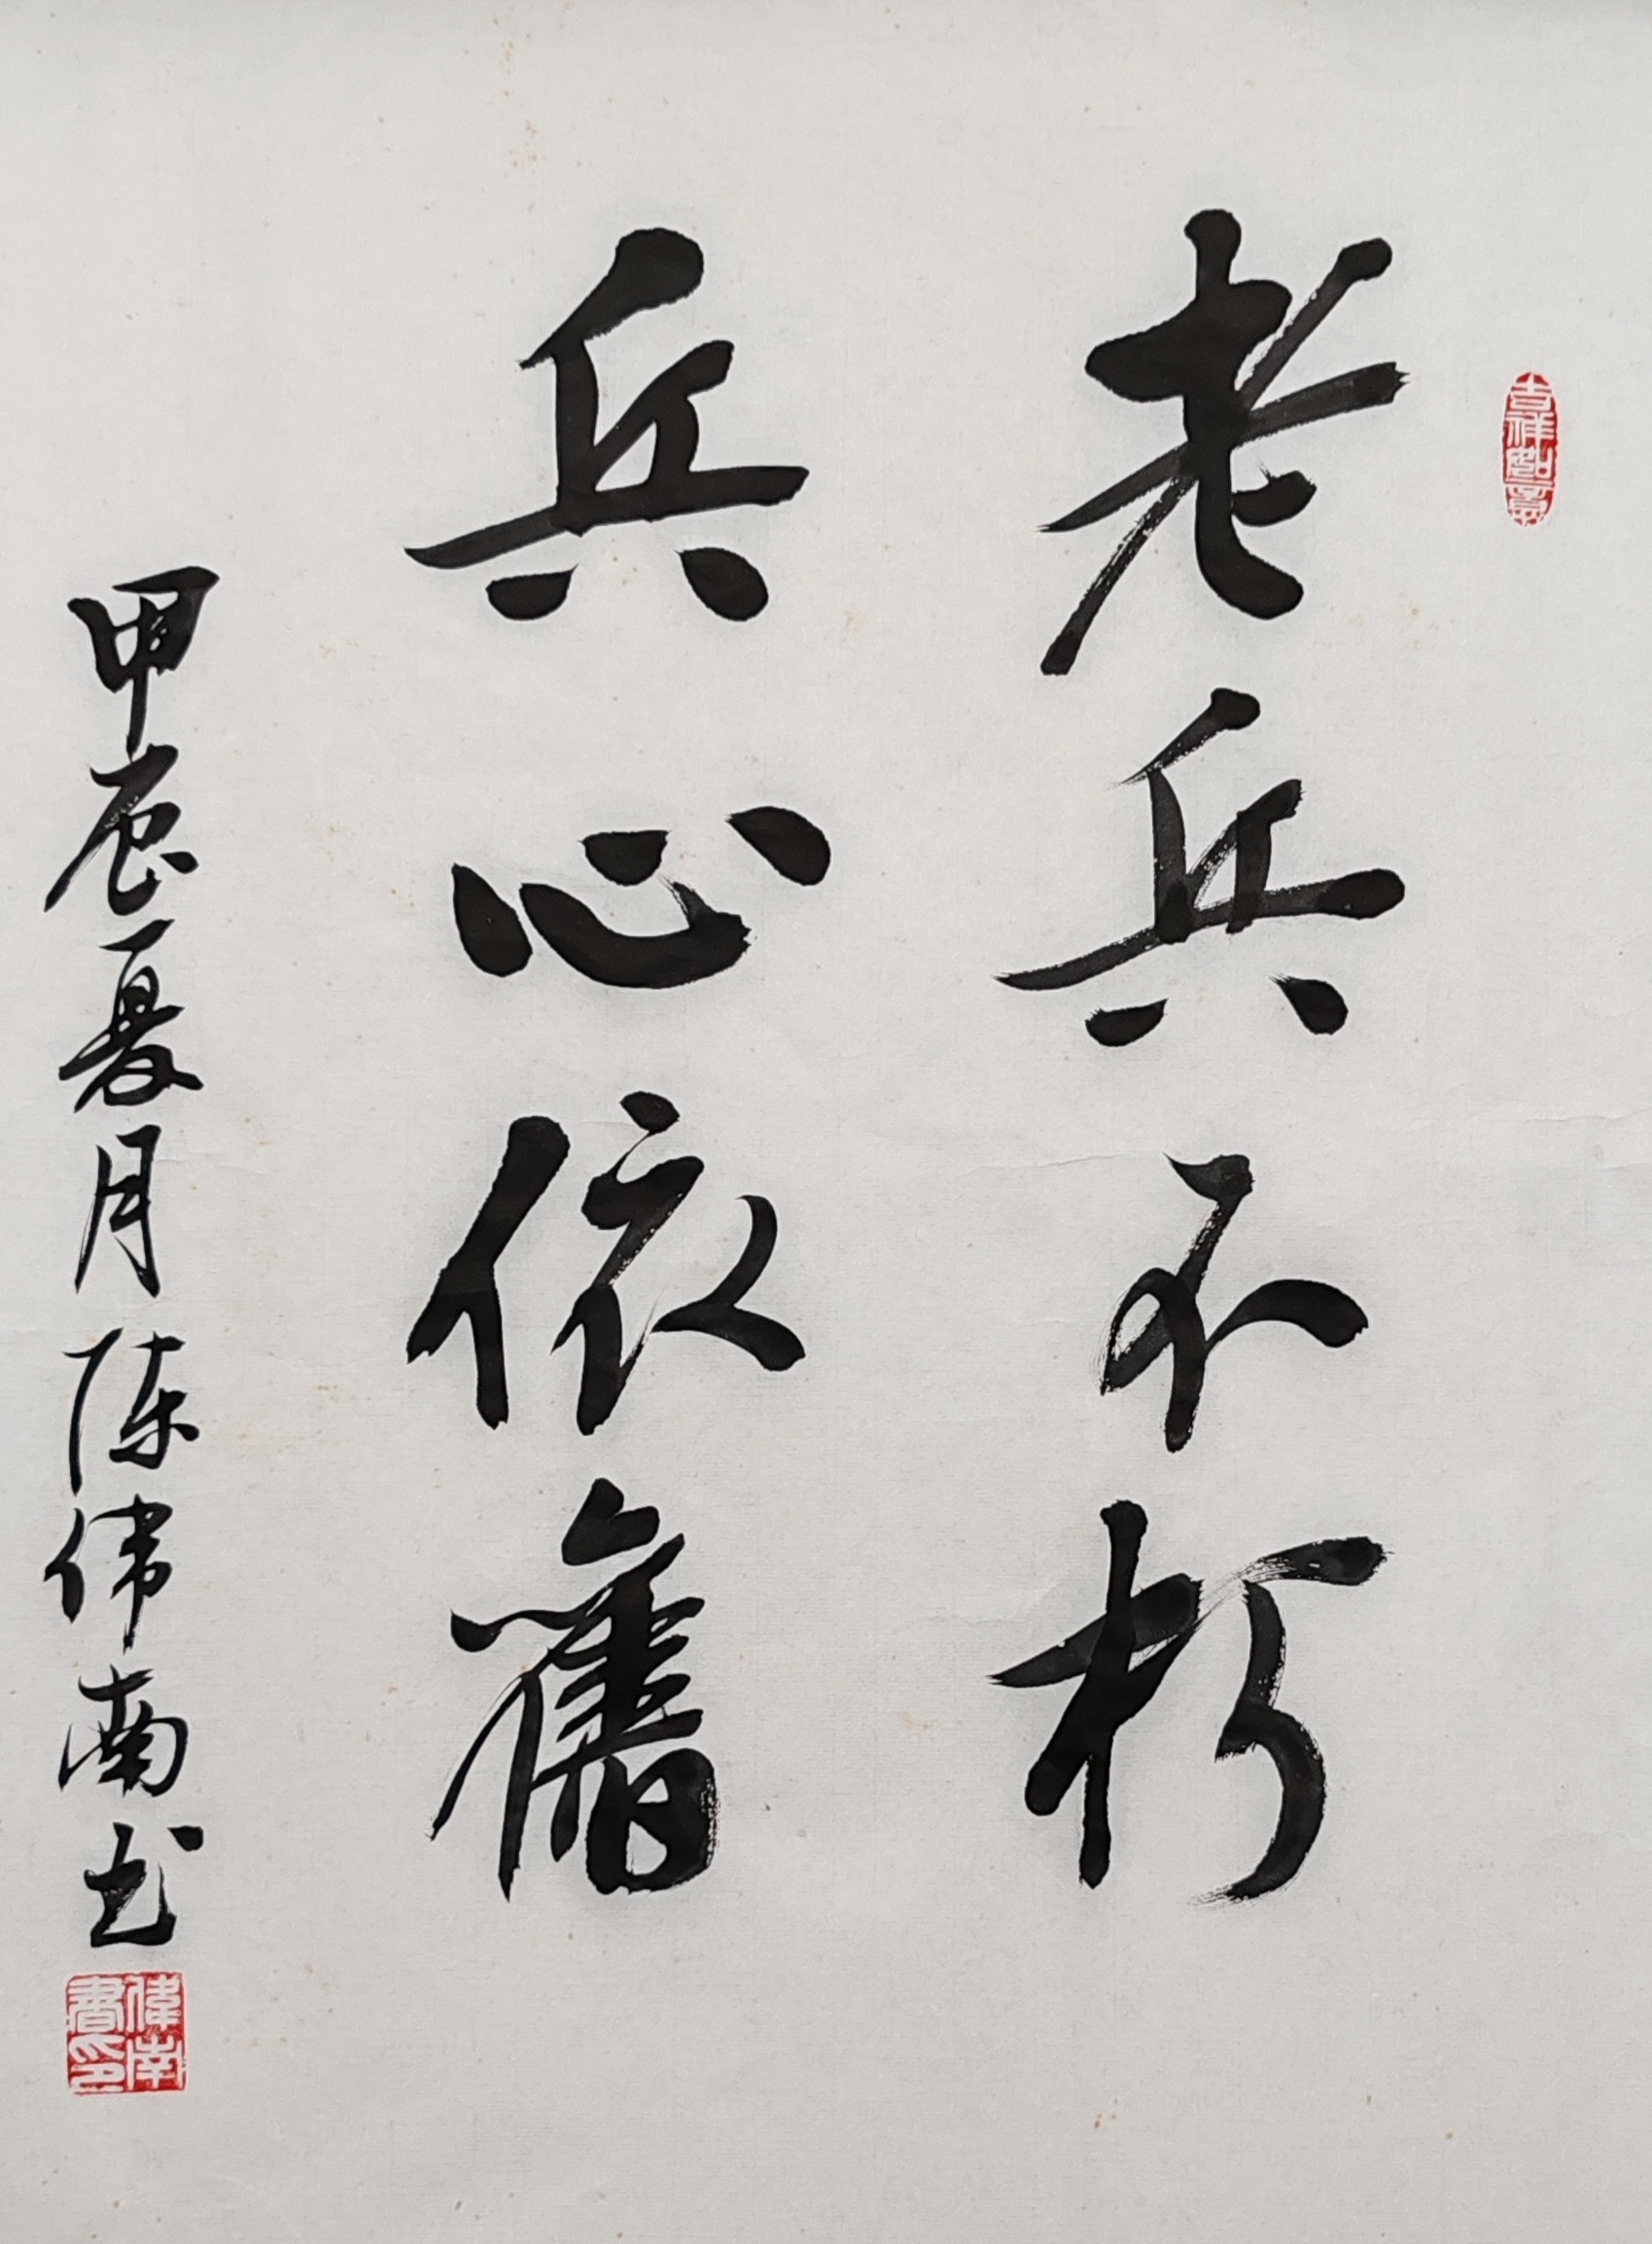 吉祥如意
老兵不朽
兵心依舊
甲辰夏月陈伟南书
偉南書印